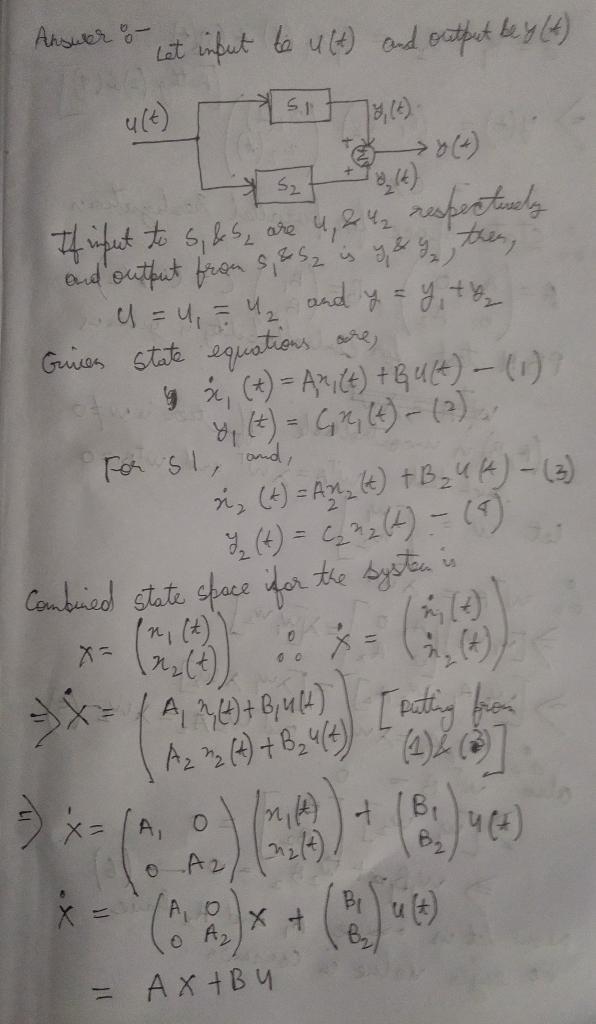 Answer :- Let input be u(t) and output be y(t)
u(t)
S1
y₁(t)
+
Σ
y(t)
+
S2
y₂(t)
If input to S₁ & S₂ are u₁ & u₂ respectively
and output from S₁ & S₂ is y₁ & y₂, then,
u = u₁ = u₂ and y = y₁ + y₂
Given state equations are,
ẋ₁(t) = A₁x₁(t) + B₁u(t) - (1)
y₁(t) = C₁x₁(t) - (2)
For S1, and,
ẋ₂(t) = A₂x₂(t) + B₂u(t) - (3)
y₂(t) = C₂x₂(t) - (4)
Combined state space for the system is
X = (x₁(t) x₂(t)) ∴ Ẋ = (ẋ₁(t) ẋ₂(t))
⇒ Ẋ = (A₁x₁(t) + B₁u(t) A₂x₂(t) + B₂u(t)) [Putting from (1) & (3)]
⇒ Ẋ = (A₁ 0 0 A₂) (x₁(t) x₂(t)) + (B₁ B₂) u(t)
Ẋ = (A₁ 0 0 A₂) X + (B₁ B₂) u(t)
= AX + BU